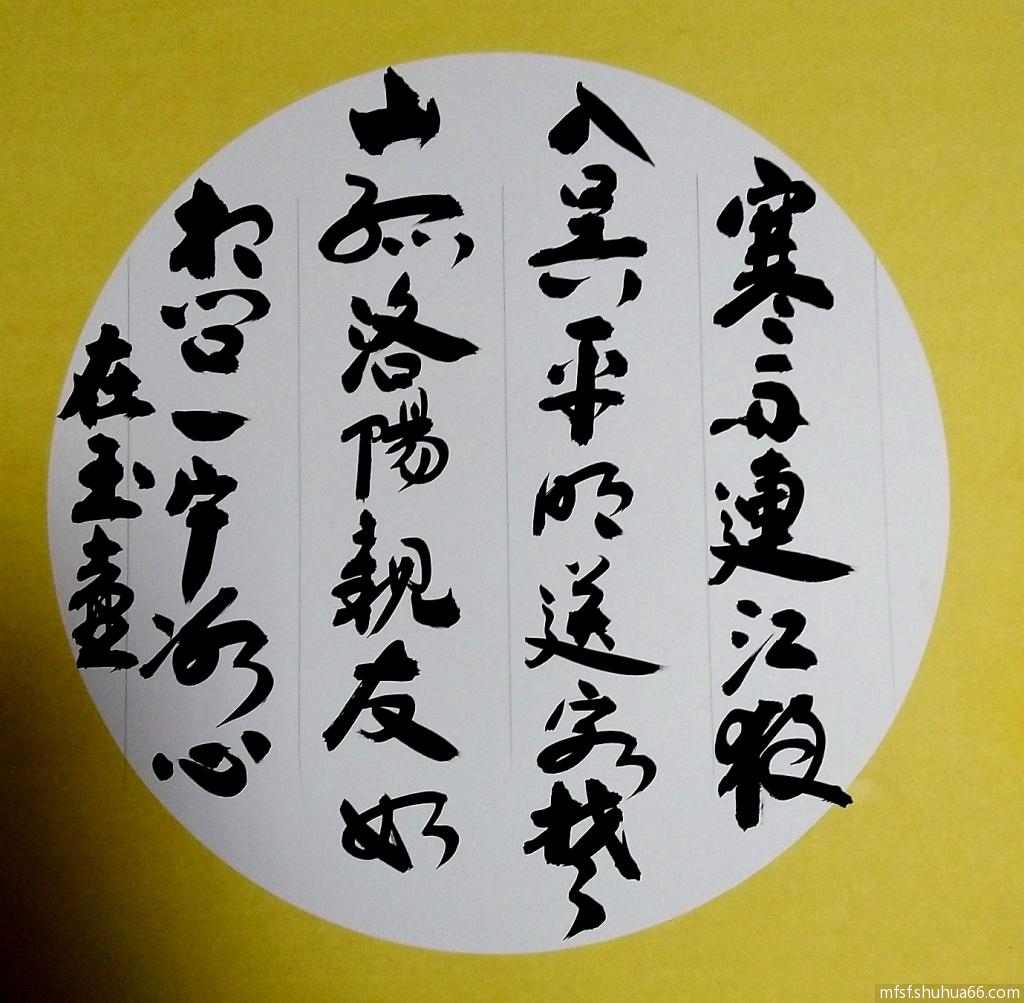 寒雨連江夜
入吳平明送客楚
山孤洛陽親友如
相問一片冰心
在玉壺
mfsf.shuhua66.com